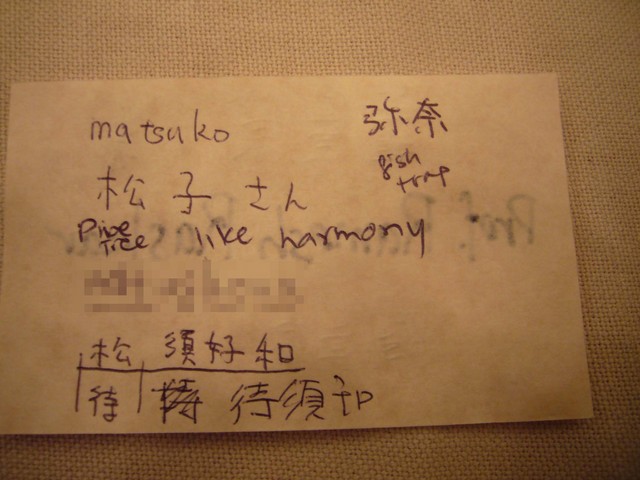 matsuko
弥奈
fish trap
松子さん
Pine tree like harmony
松 須好和
待 待須印